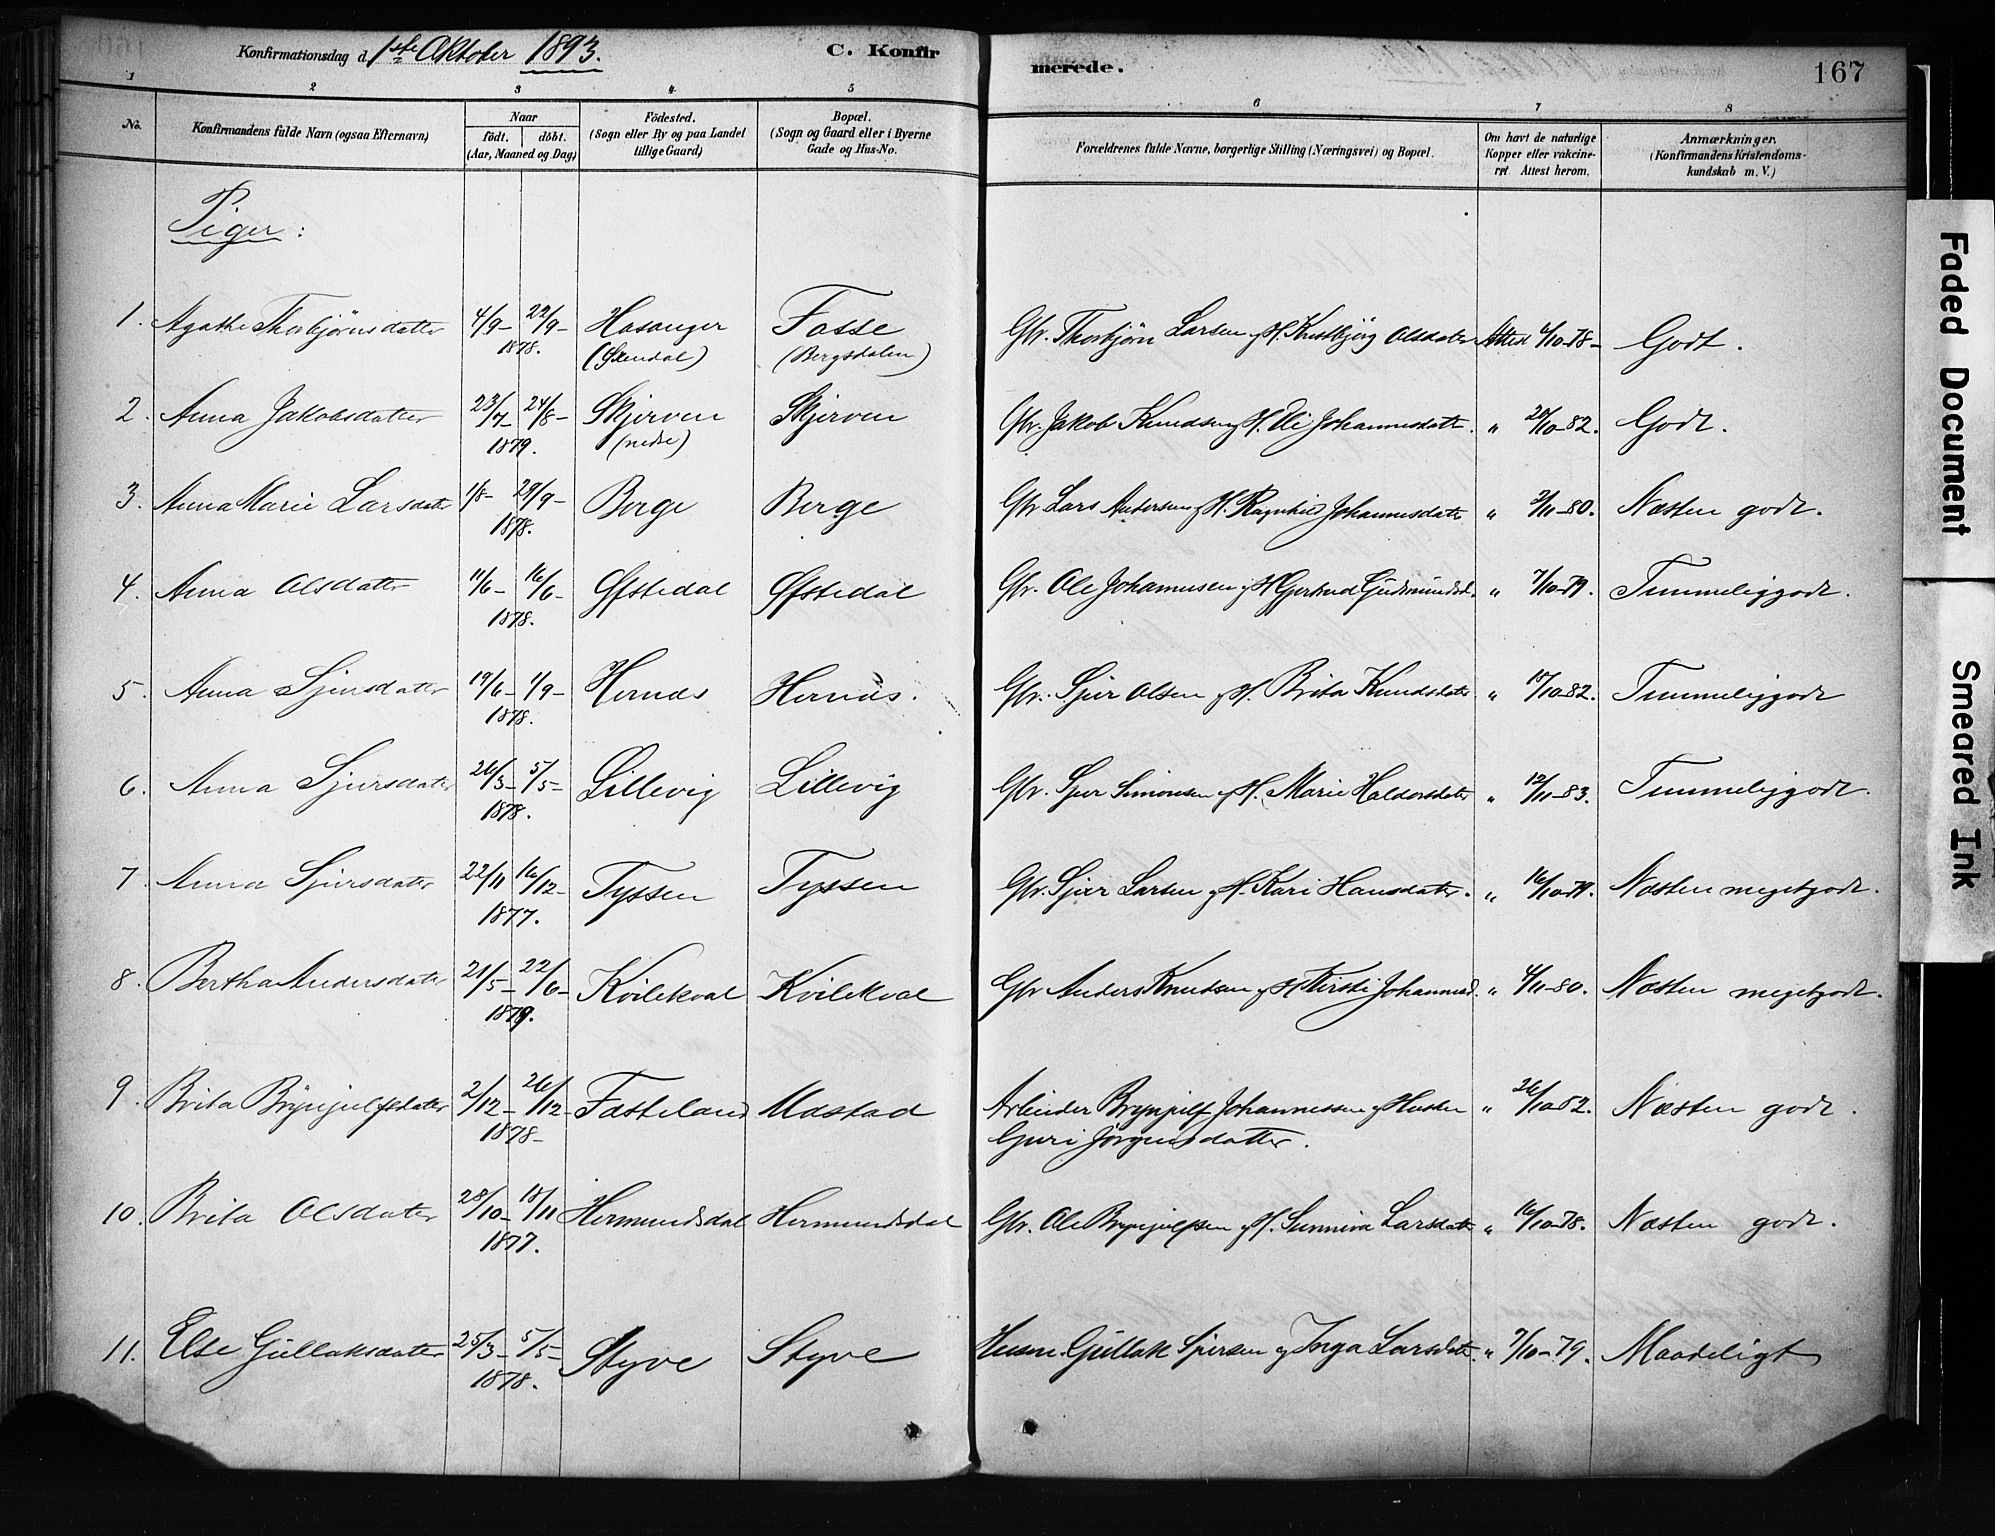 Konfirmationsdag d. 1ste Oktober 1893.
C. Konfirmerede.
167
1 2 3 4 5 6 7 8
No.
Konfirmandens fulde Navn (ogsaa Efternavn)
Naar
födt. döbt.
(Aar, Maaned og Dag)
Födested.
(Sogn eller By og paa Landet
tillige Gaard)
Bopæl.
(Sogn og Gaard eller i Byerne
Gade og Hus-No.
Forældrenes fulde Navne, borgerlige Stilling (Næringsvei) og Bopæl.
Om havt de naturlige
Kopper eller vakcine-
ret. Attest herom.
Anmærkninger.
(Konfirmandens Kristendoms-
kundskab m. V.)
Piger:
1. Agathe Thorbjørnsdatter 4/9- 22/9- Hosanger Fosse Gbr. Thorbjørn Larsen og H. Olsdatter Attest 6/10-78- Godt.
1878. (Bergsdalen)
2. Anna Jakobsdatter 23/7- 24/8- Skjerven Skjerven Gbr. Jakob Knudsen og H. Eli Johannesdatt. " 20/10-82. Godt.
1879. (nedre)
3. Anna Marie Larsdatter 1/8- 29/9- Berge Berge Gbr Lars Andersen og H. Ragnhild Johannesdatt " 2/11-80. Næsten godt.
1878.
4. Anna Olsdatter 11/6- 16/6- Øfstedal Øfstedal Gbr. Ole Johannesen og H Gjertrud Gudmundsd. " 7/10-79. Temmeliggodt.
1878.
5. Anna Sjursdatter 19/6- 1/9- Hernæs Hernæs. Gbr. Sjur Olsen og H. Brita Knudsdatter " 15/10-82. Temmeliggodt
1878.
6. Anna Sjursdatter 26/3- 5/5- Lillevig Lillevig Gbr. Sjur Simonsen og H. Marie Haldorsdatter " 12/11-83. Temmeliggodt.
1878.
7. Anna Sjursdatter 22/11 16/12- Tyssen Tyssen Gbr. Sjur Larsen og H. Kari Hansdatter. " 16/10-79. Næsten megetgodt.
1877.
8. Bertha Andersdatter 21/5- 22/6- Kvilekval Kvilekval Gbr Anders Knudsen og H Kirsti Johannesd. " 4/11-80. Næsten megetgodt.
1879.
9. Brita Brynjulfsdatter 2/12- 26/12- Fosseland Mostad Arbeider Brynjulf Johannessen og Hustru " 26/10-82. Næsten godt.
1878- Guri Jørgensdatter.
10. Brita Olsdatter 28/10- 18/11 Hermundsdal Hermundsdal Gbr. Ole Brynjulfsen og H. Sunniva Larsdatt " 16/10-78. Næsten godt.
1877.
11. Else Gullaksdatter 25/3- 5/5- Styve Styve Husm. Gullak Sjursen og Inga Larsdatt. " 7/10-79. Maadeligt
1878.
Faded Document
Smeared Ink